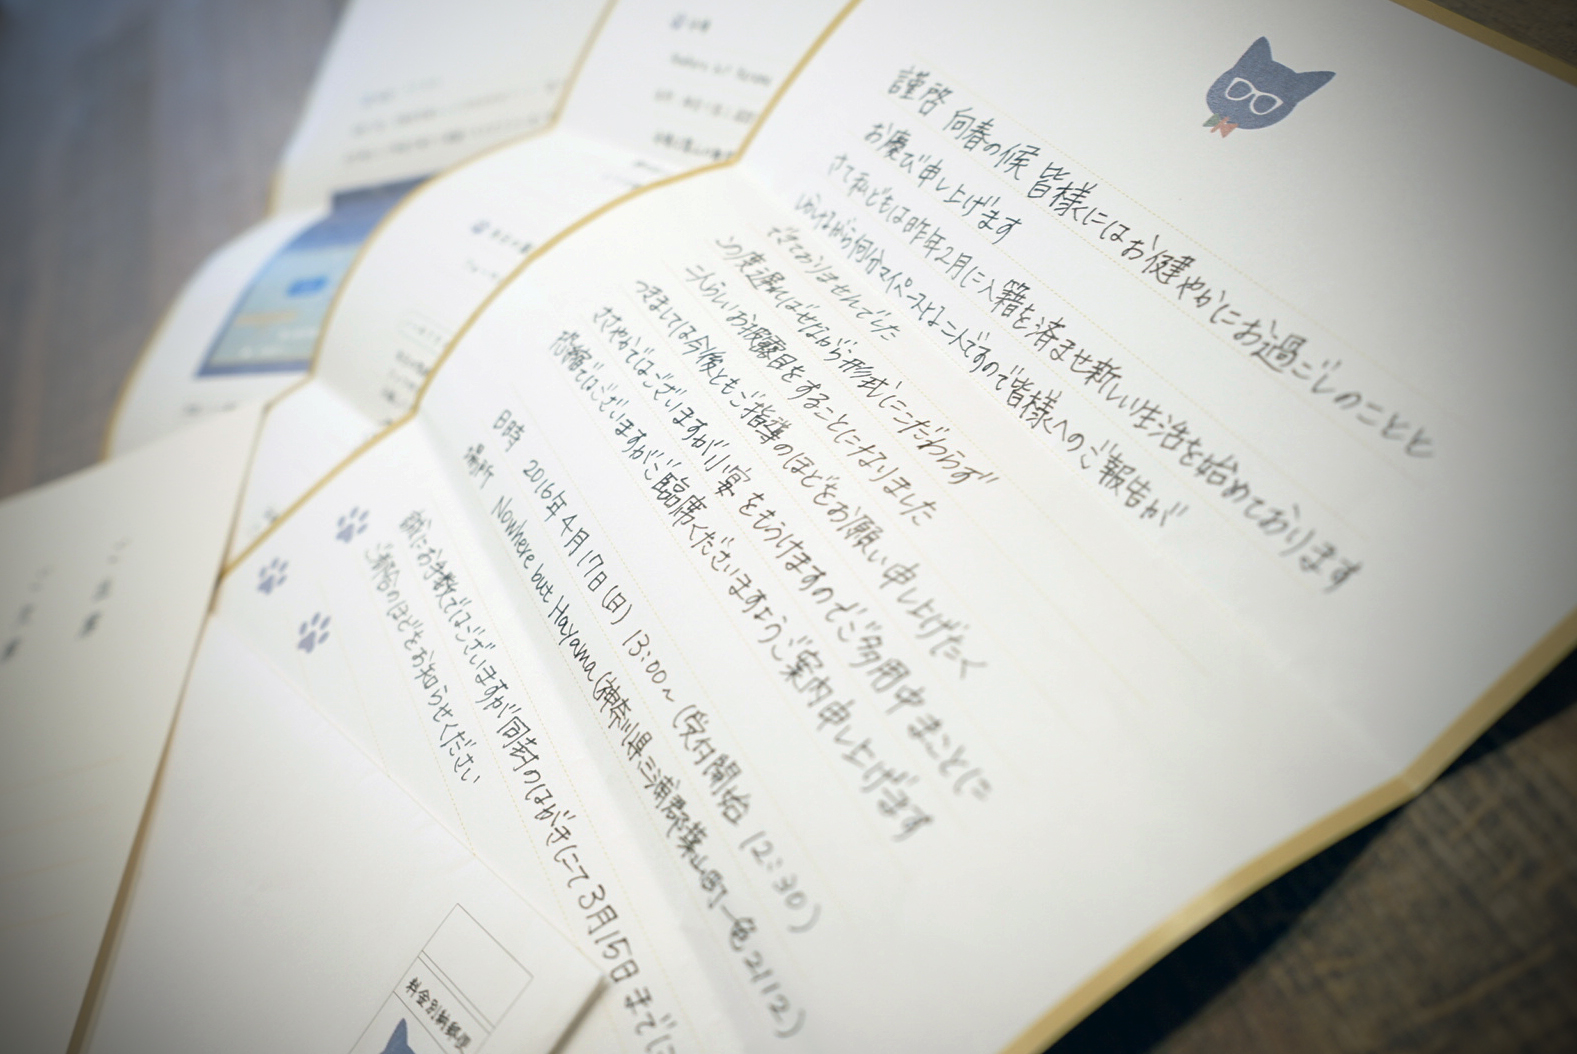 謹啓 向春の候 皆様にはお健やかにお過ごしのことと
お慶び申し上げます
さて私どもは昨年2月に入籍を済ませ新しい生活を始めております
しかしながら何分マイペースな二人ですので皆様へのご報告が
できておりませんでした
この度遅ればせながら形式にこだわらず
二人らしいお披露目をすることになりました
つきましては今後ともご指導のほどをお願い申し上げたく
ささやかではございますが小宴をもうけますのでご多用中まことに
恐縮ではございますがご臨席くださいますようご案内申し上げます
日時 2016年4月17日(日) 13:00~(受付開始 12:30)
場所 Nowhere but Hayama(神奈川県三浦郡葉山町一色2112)
誠にお手数ではございますが同封のはがきにて3月15日までに
ご都合のほどをお知らせください
料金別納郵便